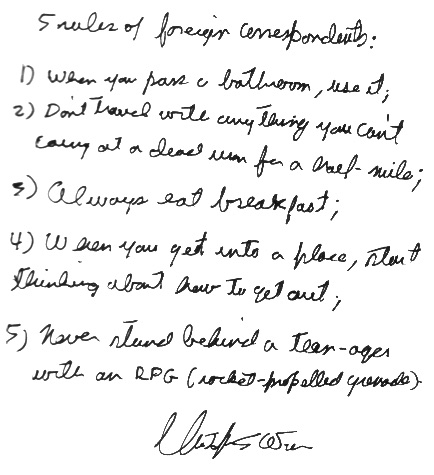 5 rules of foreign correspondents:
1) When you pass a bathroom, use it;
2) Don't travel with anything you can't
carry at a dead run for a half-mile;
3) Always eat breakfast;
4) When you get into a place, start
thinking about how to get out;
5) Never stand behind a teen-ager
with an RPG (rocket-propelled grenade).